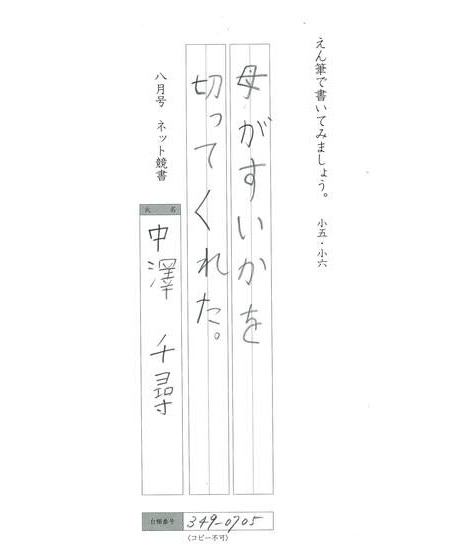 えん筆で書いてみましょう。 小五・小六
母がすいかを
切ってくれた。
八月号 ネット競書
氏 名
中澤 千尋
台帳番号 349-0705
(コピー不可)